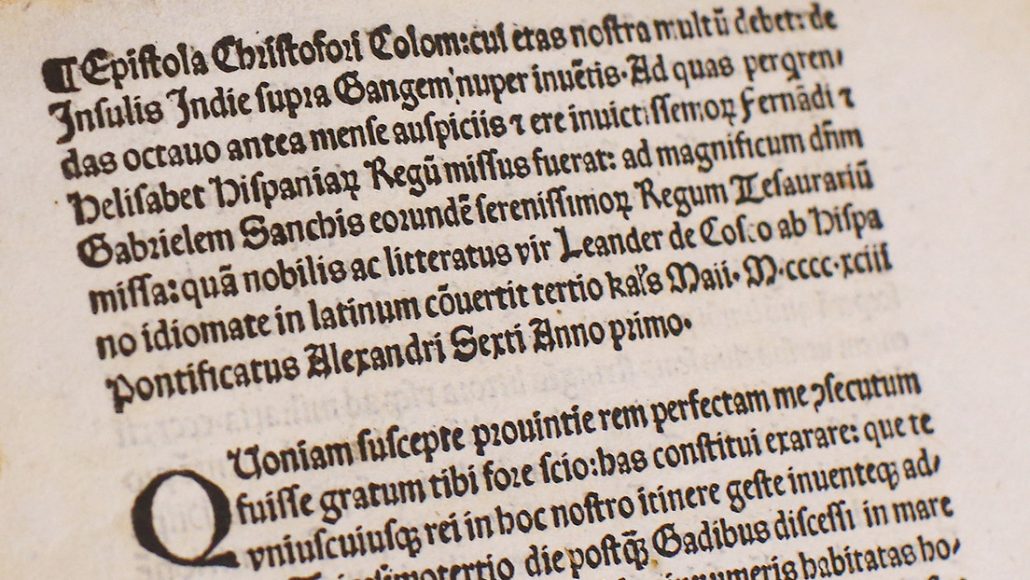 ¶ Epistola Christofori Colom: cui etas nostra multū debet: de
Insulis Indie supra Gangem nuper inuētis. Ad quas perqren/
das octauo antea mense auspiciis ⁊ ere inuictissemoꝝ Fernādi ⁊
Helisabet Hispaniaꝝ Regū missus fuerat: ad magnificum dn̄m
Gabrielem Sanchis eorundē serenissimoꝝ Regum Tesaurariū
missa: quā nobilis ac litteratus vir Leander de Cosco ab Hispa
no idiomate in latinum cōuertit tertio kal̄s Maii. M.cccc.xciii
Pontificatus Alexandri Sexti Anno primo.
Quoniam suscepte prouintie rem perfectam me ꝯsecutum
fuisse gratum tibi fore scio: has constitui exarare: que te
vniuscuiusqꝫ rei in hoc nostro itinere geste inuenteqꝫ ad/
die postqꝫ Gadibus discessi in mare
innumeris habitatas ho/